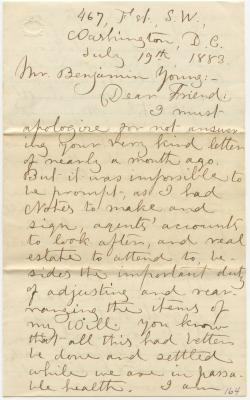 467, F st. S.W.,
Washington, D.C.
July 19th, 1883.
Mr. Benjamin Young:-
Dear Friend:
I must
apologize for not answer-
ing your very kind letter
of nearly a month ago.
But it was impossible to
be prompt, as I had
Notes to make and
sign, agents' accounts
to look after, and real
estate to attend to, be-
sides the important duty
of adjusting and rear-
ranging the items of
my Will. You know
that all this had better
be done and settled
while we are in passa-
ble health. I am
164